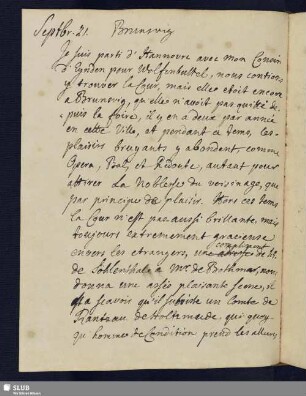 Septbr. 21. Brunsvig
Je suis parti d'Hannovre avec mon Cousin
d'Eynden pour Wolfenbuttel, nous contions
y trouver la Cour, mais elle etoit encore
a Brunsvig, qu'elle n'avoit pas quitté de
puis la foire, il y en a deux par année
en cette Ville, et pendant ce tems, les
plaisirs bruyants y abondent comme
Opera, Bals, et Redoute, autant pour
attirer La Noblesse du voisinage, que
par principe de plaisir. Hors ces tems
la Cour n'est pas aussi brillante, mais
toujours extremement gracieuse
envers les etrangers, une compliment de Mr.
de a Mr. de Bothmar, nous
donna une assés plaisante scene, il
a scavoir qu'il un Comte de
Rantzau de qui quoy-
qu'homme de Condition pretend les allures
SLUB